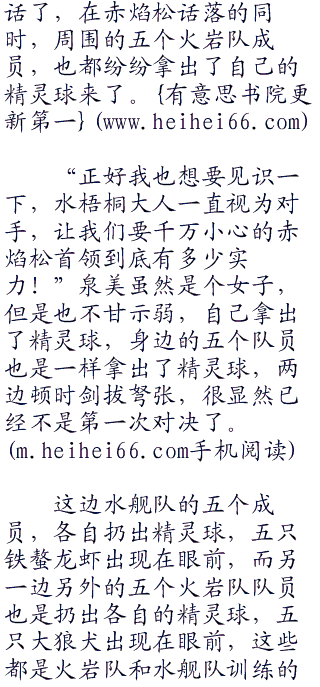 话了，在赤焰松话落的同
时，周围的五个火岩队成
员，也都纷纷拿出了自己的
精灵球来了。{有意思书院更
新第一}(www.heihei66.com)
“正好我也想要见识一
下，水梧桐大人一直视为对
手，让我们要千万小心的赤
焰松首领到底有多少实
力！”泉美虽然是个女子，
但是也不甘示弱，自己拿出
了精灵球，身边的五个队员
也是一样拿出了精灵球，两
边顿时剑拔弩张，很显然已
经不是第一次对决了。
(m.heihei66.com手机阅读)
这边水舰队的五个成
员，各自扔出精灵球，五只
铁螯龙虾出现在眼前，而另
一边另外的五个火岩队队员
也是扔出各自的精灵球，五
只大狼犬出现在眼前，这些
都是火岩队和水舰队训练的